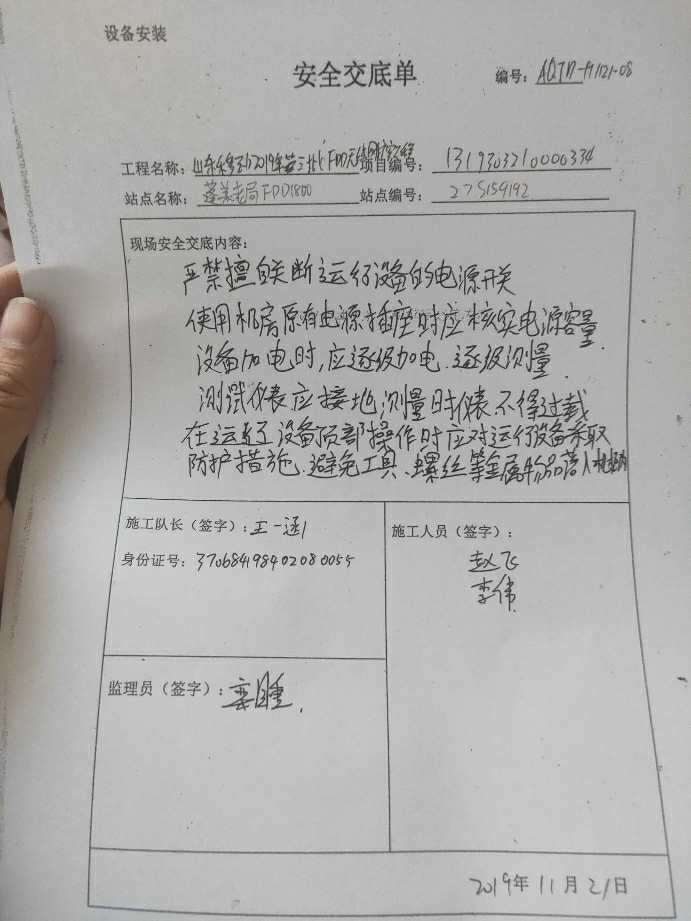 设备安装
安全交底单
编号：AQJD-191121-08
工程名称：山东移动2019年蓬三北FDD无线 工程 项目编号：1319303210000334
站点名称：蓬莱老局FDD1800 站点编号：275159192
现场安全交底内容：
严禁擅自关断运行设备的电源开关
使用机房原有电源插座时应核实电源容量
设备加电时，应逐级加电.逐级测量.
测试仪表应接地测量时仪表不得过载
在运行设备顶部操作时应对运行设备采取
防护措施.避免工具、螺丝等金属物品落入机柜内
施工队长（签字）：王一涵 施工人员（签字）：
身份证号：370684198402080055 赵飞
李伟
监理员（签字）：
2019年11月21日